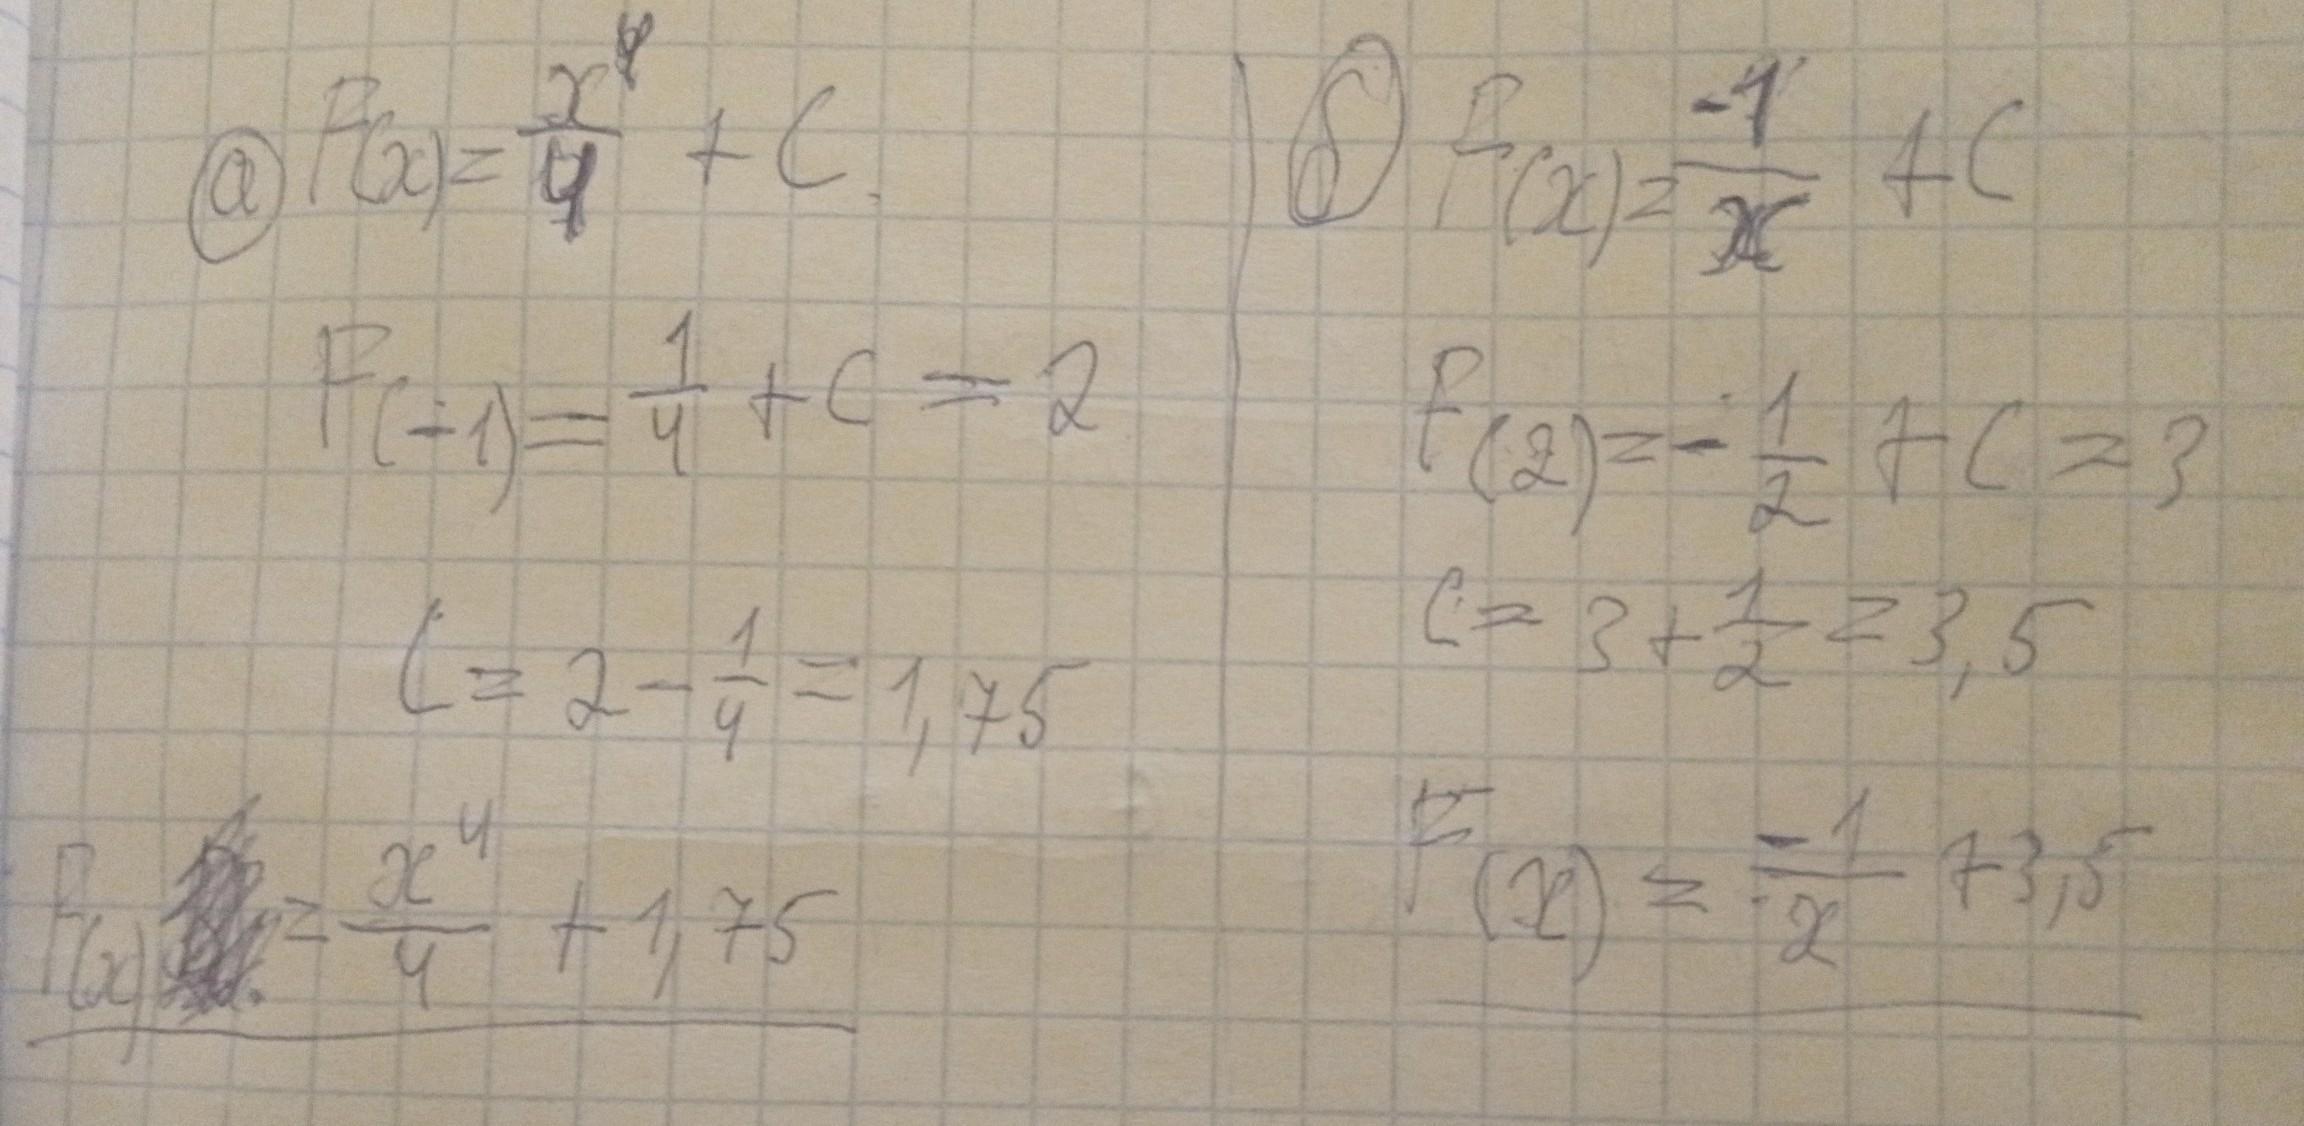 а) F(x) = x⁴/4 + C.
F(-1) = 1/4 + C = 2
C = 2 - 1/4 = 1,75
F(x) = x⁴/4 + 1,75
б) F(x) = -1/x + C
F(2) = - 1/2 + C = 3
C = 3 + 1/2 = 3,5
F(x) = -1/x + 3,5